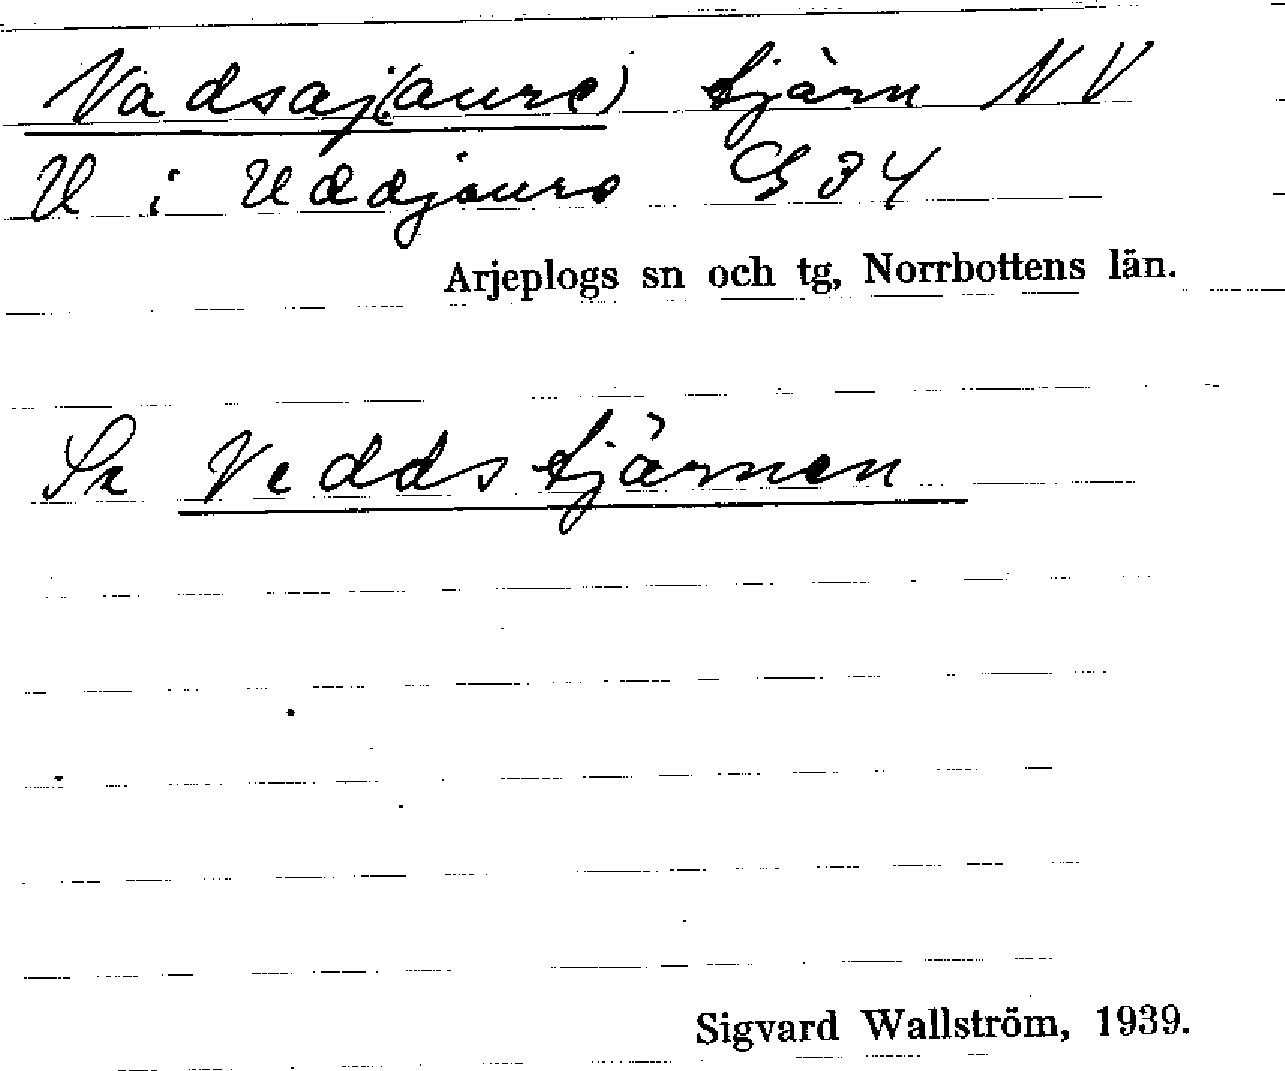 Vadsaj(aure) tjärn NV
U i Uddjaure G34
Arjeplogs sn och tg, Norrbottens län.
Se Veddstjärnen
Sigvard Wallström, 1939.